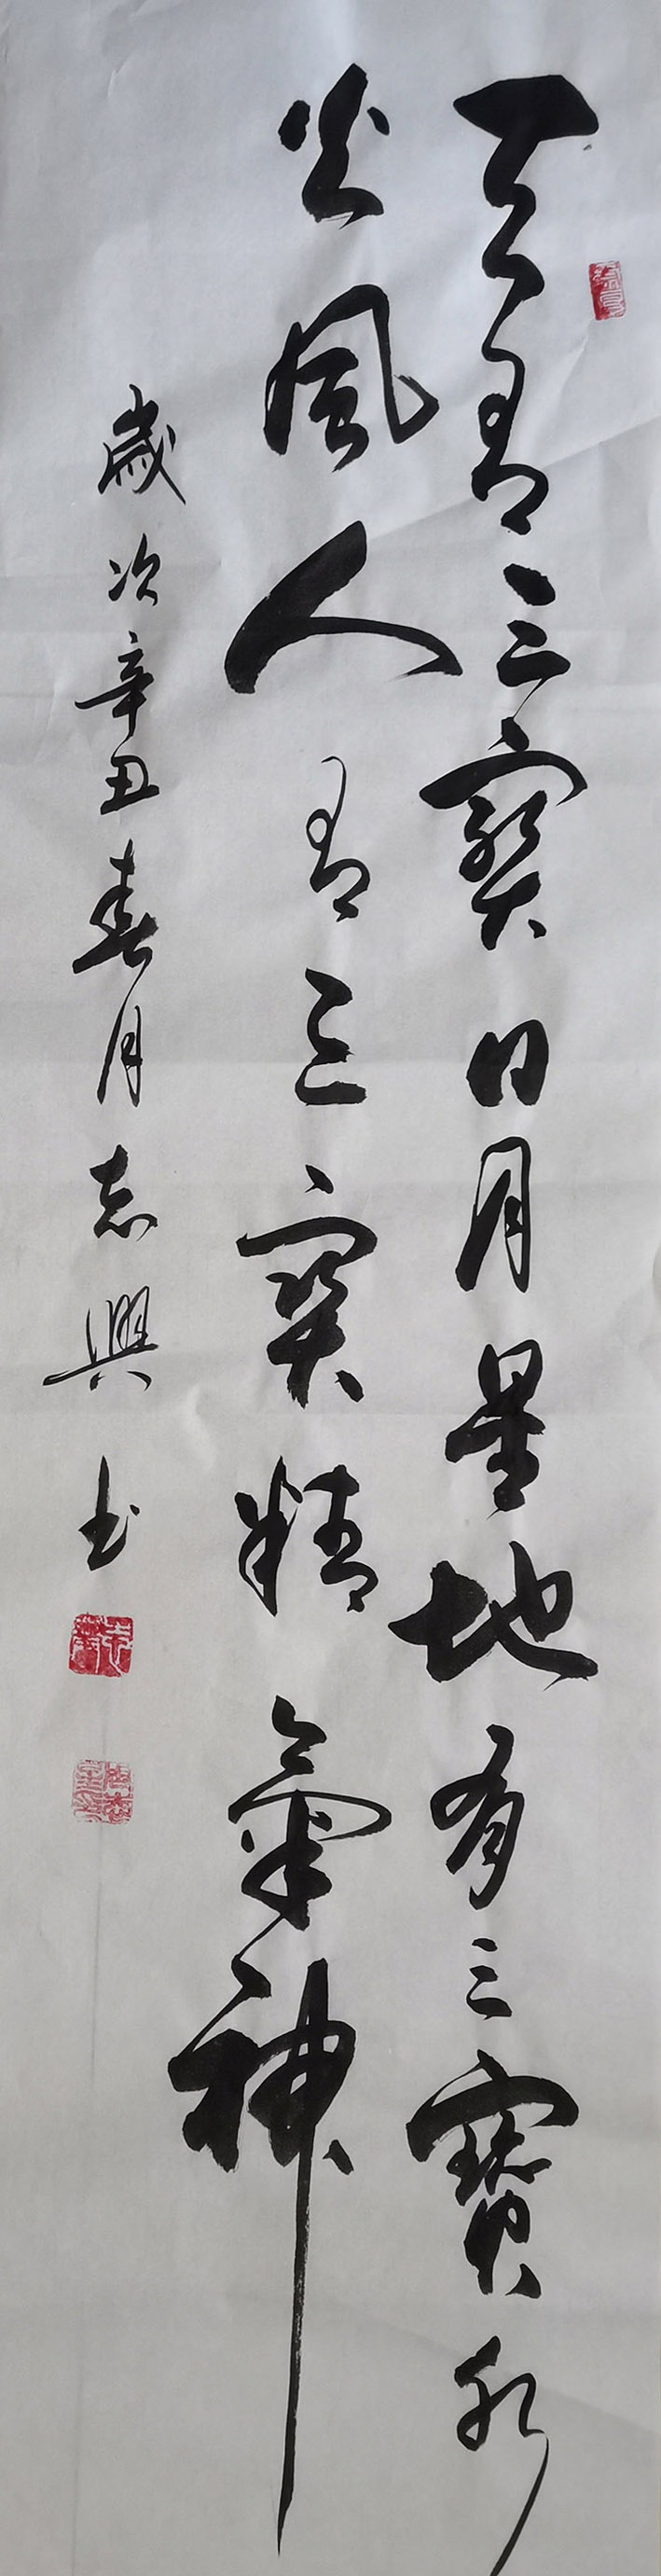 天有三寶日月星地有三寶水
火風人有三寶精氣神
歲次辛丑春月志興书